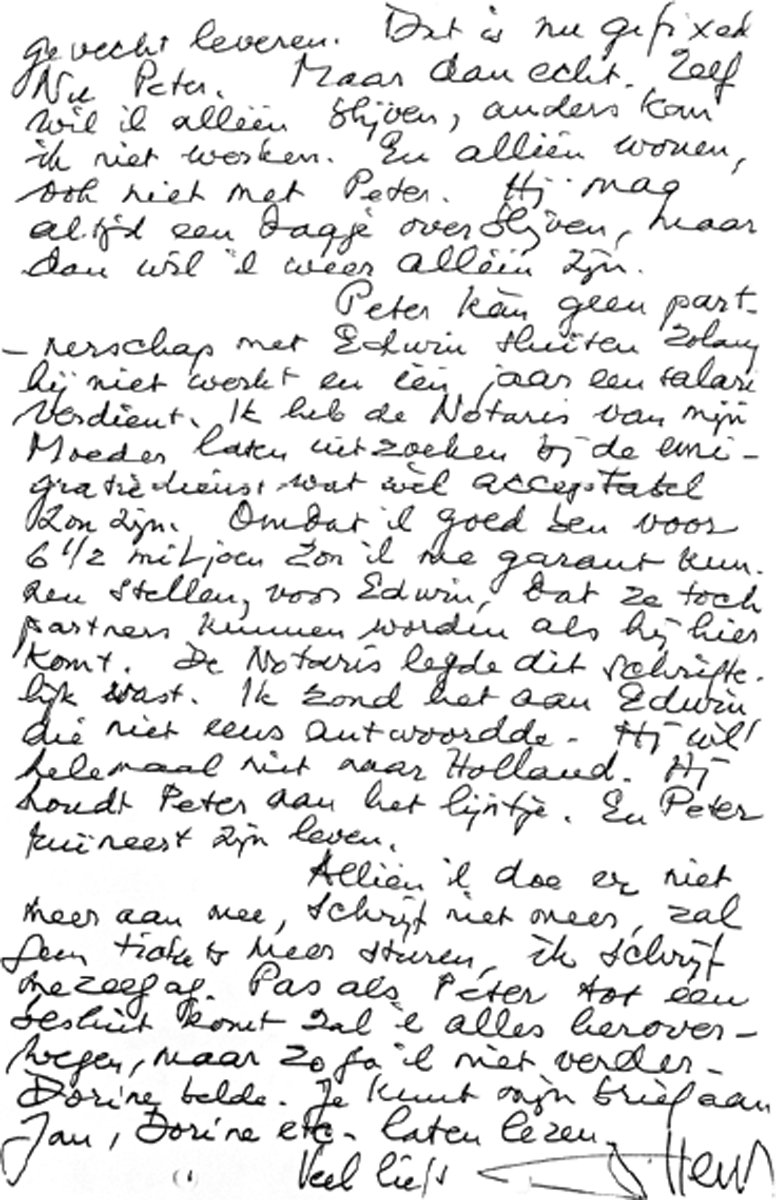 gevecht leveren. Dat is nu gefixed
Nu Peter. Maar dan echt. Zelf
wil ik alléén blijven, anders kan
ik niet werken. En alléén wonen,
ook niet met Peter. Hij mag
altijd een dagje overblijven, maar
dan wil ik weer alléén zijn.
Peter kàn geen part-
- nerschap met Edwin sluiten zolang
hij niet werkt en één jaar een salaris
verdient. Ik heb de Notaris van mijn
Moeder laten uitzoeken bij de emi-
gratiedienst wat wèl acceptabel
zou zijn. Omdat ik goed ben voor
6 1/2 miljoen zou ik me garant kun-
nen stellen, voor Edwin, dat ze toch
partners kunnen worden als hij hier
komt. De Notaris legde dit schrifte-
lijk vast. Ik zond het aan Edwin
die niet eens antwoordde - Hij wil
helemaal niet naar Holland. Hij
houdt Peter aan het lijntje. En Peter
ruïneert zijn leven.
Alléén ik doe er niet
meer aan mee, schrijf niet meer, zal
geen tickets meer sturen, ik schrijf
mezelf af. Pas als Peter tot een
besluit komt zal ik alles herover-
wegen, maar zo ga ik niet verder -
Dorine belde. Je kunt mijn brief aan
Jan, Dorine etc. laten lezen.
Veel liefs